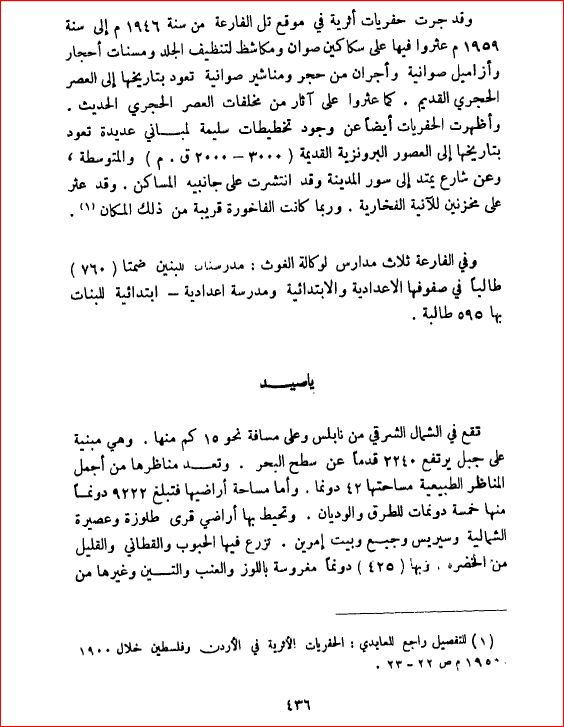 وقد جرت حفريات أثرية في موقع تل الفارعة من سنة ١٩٤٦ م إلى سنة
١٩٥٩ م عثروا فيها على سكاكين صوان ومكاشط لتنظيف الجلد ومسنات أحجار
وأزاميل صوانية وأجران من حجر ومناشير صوانية تعود بتاريخها إلى العصر
الحجري القديم . كما عثروا على آثار من مخلفات العصر الحجري الحديث .
وأظهرت الحفريات أيضاً عن وجود تخطيطات سليمة لمبــاني عديدة تعود
بتاريخها إلى العصور البرونزية القديمة ( ٣٠٠٠ – ٢٠٠٠ ق . م ) والمتوسطة ،
وعن شارع يمتد إلى سور المدينة وقد انتشرت على جانبيه المساكن . وقد عثر
على مخزنين للآنية الفخارية . وربما كانت الفاخورة قريبة من ذلك المكان (١) .
وفي الفارعة ثلاث مدارس لوكالة الغوث : مدرستان للبنين ضمتا ( ٧٦٠ )
طالباً في صفوفها الاعدادية والابتدائية ومدرسة اعدادية – ابتدائية للبنات
بها ٥٩٥ طالبة .
ياصيــد
تقع في الشمال الشرقي من نابلس وعلى مسافة نحو ١٥ كم منها . وهي مبنية
على جبل يرتفع ٢٢٤٠ قدماً عن سطح البحر . وتعــد مناظرها من أجمل
المناظر الطبيعية مساحتها ٤٢ دونما . وأما مساحة أراضيها فتبلغ ٩٢٢٢ دونمــاً
منها خمسة دونمات للطرق والوديان . وتحيط بها أراضي قرى طلوزة وعصيرة
الشمالية وسيريس وجبـع وبيت إمرين . تزرع فيها الحبوب والقطاني والقليل
من الخضره . وبها ( ٤٢٥ ) دونماً مغروسة باللوز والعنب والتــين وغيرها من
(١) للتفصيل راجع للعابدي : الحفريات الأثرية في الأردن وفلسطين خلال ١٩٠٠
١٩٥٠ م ص ٢٢ – ٢٣ .
٤٣٦